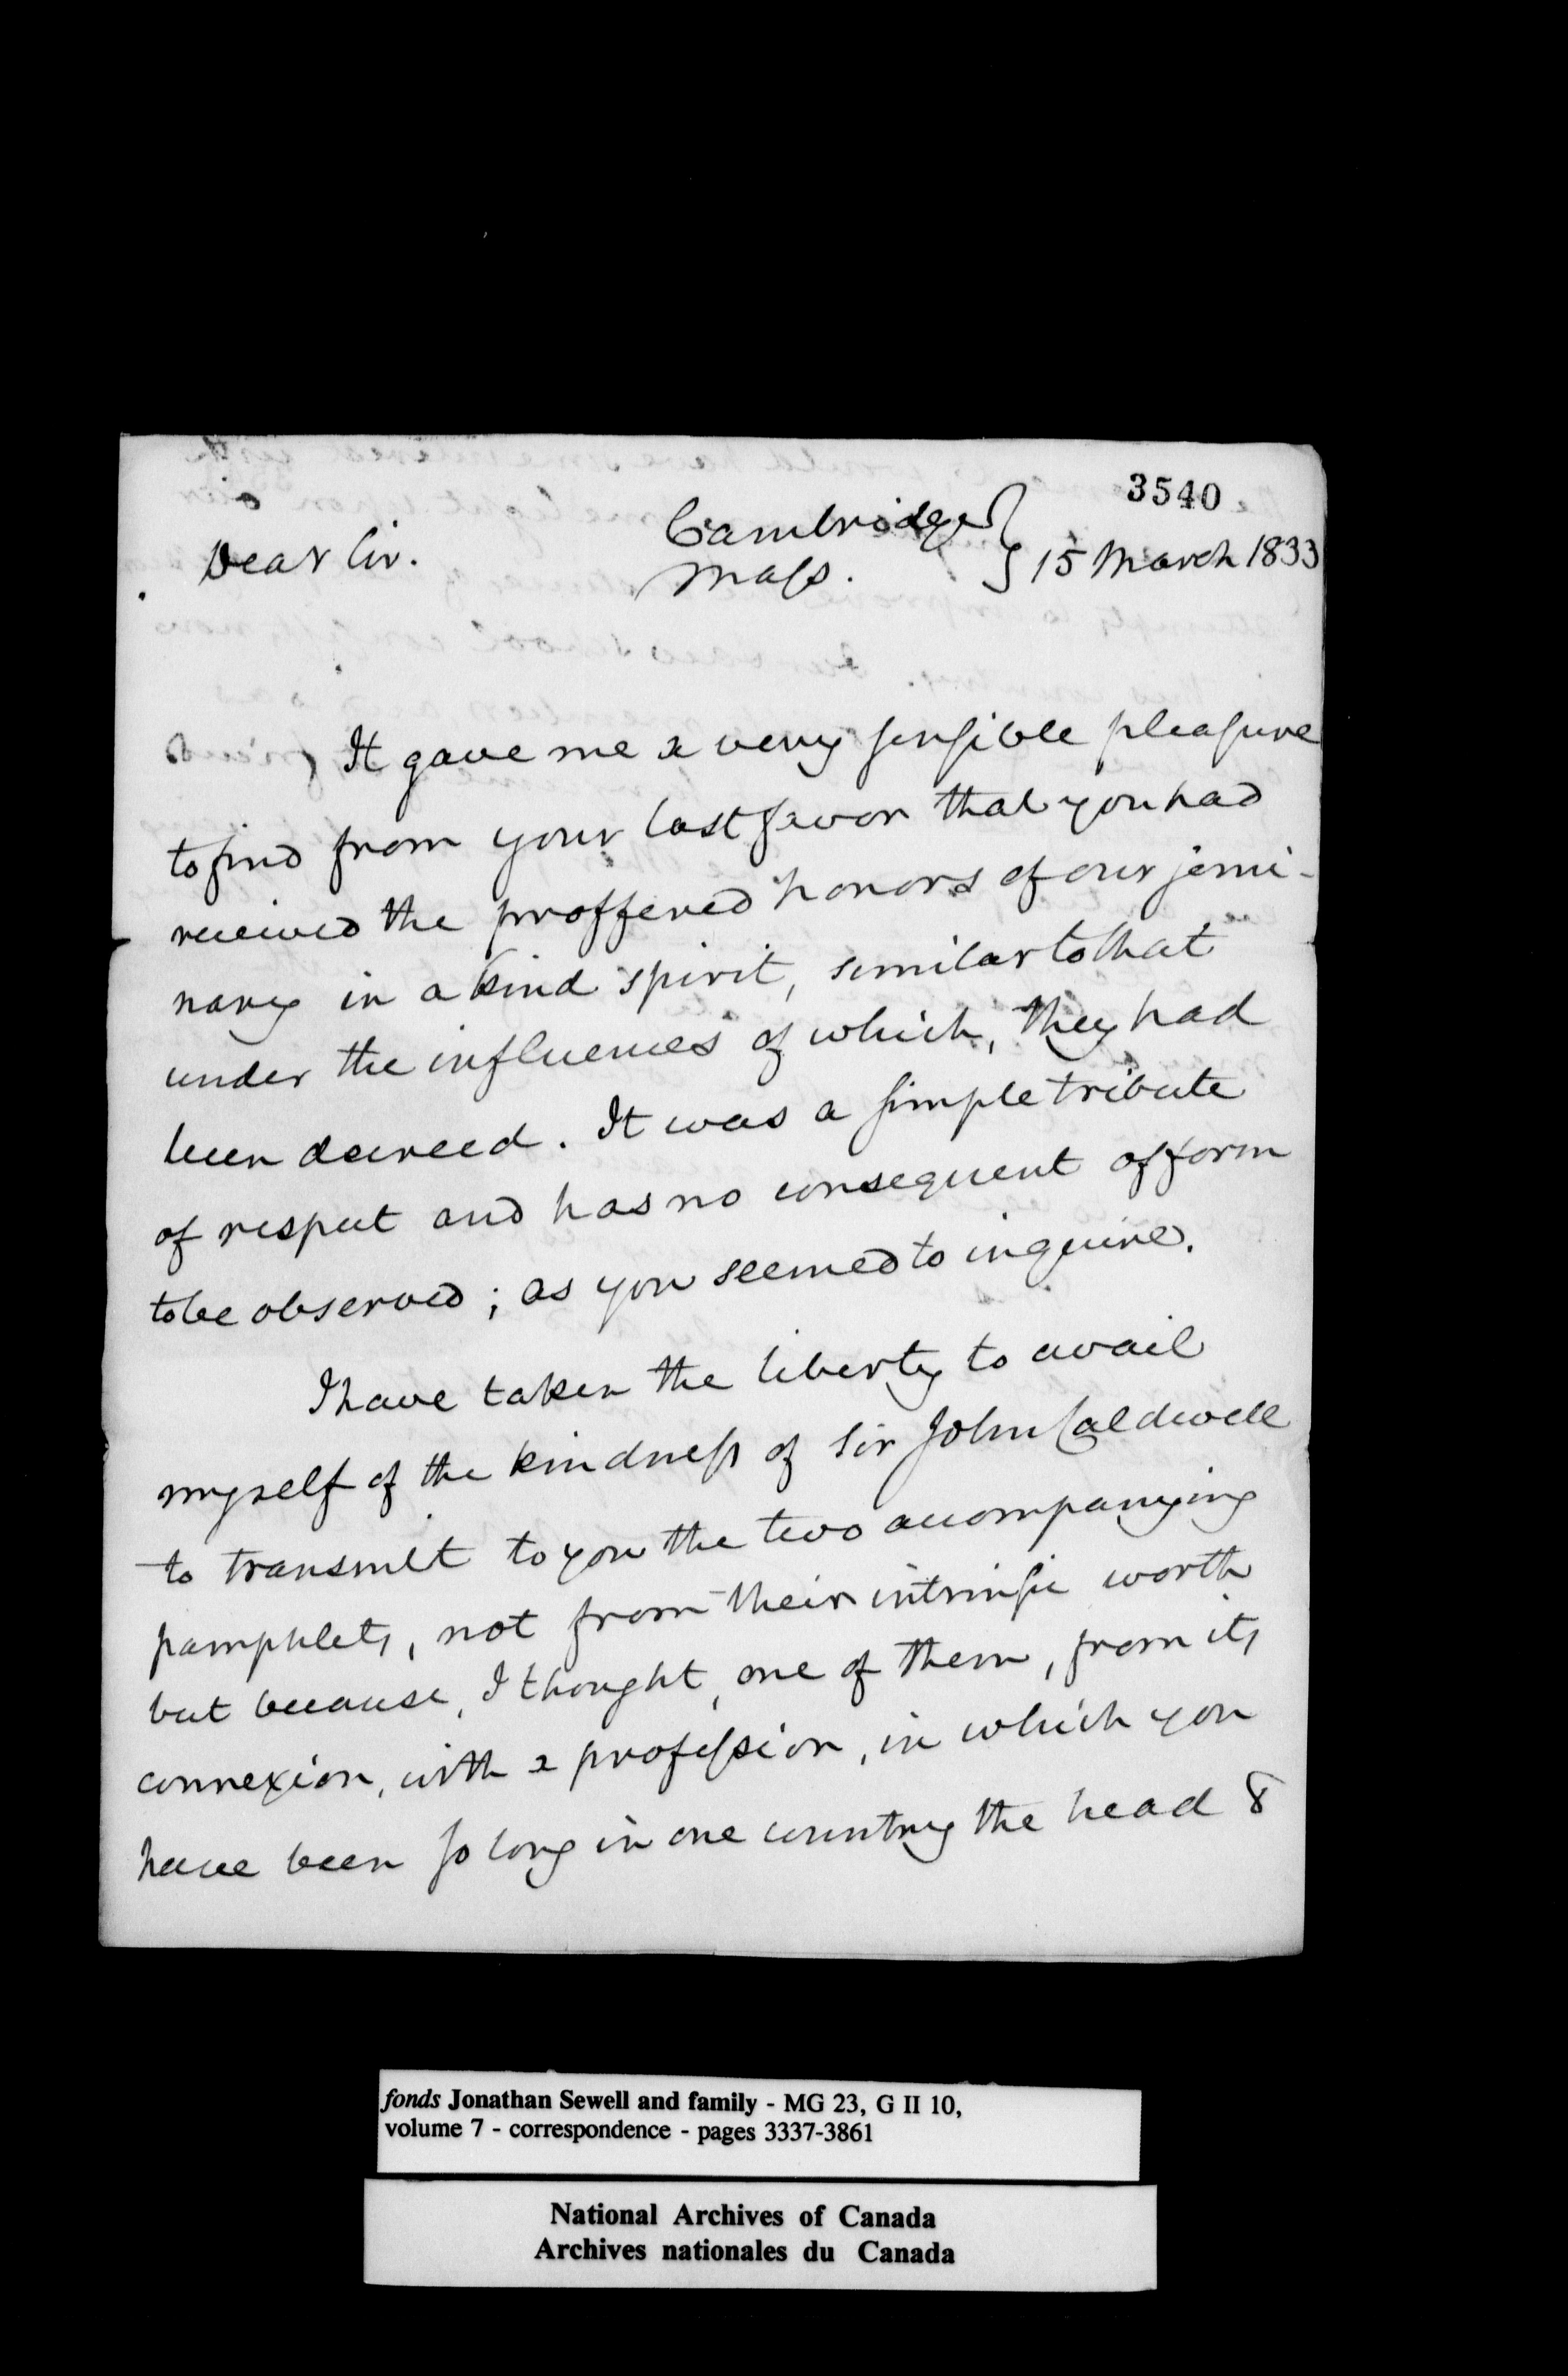 3540
Cambridge }
Mass. } 15 March 1833
Dear Sir.
It gave me a very sensible pleasure
to find from your last favor that you had
received the proffered honors of our semi-
nary in a kind spirit, similar to that
under the influences of which, they had
been decreed. It was a simple tribute
of respect and has no consequent of form
to be observed; as you seemed to inquire.
I have taken the liberty to avail
myself of the kindness of Sir John Caldwell
to transmit to you the two accompanying
pamphlets, not from their intrinsic worth
but because, I thought, one of them, from its
connexion, with a profession, in which you
have been so long in one country the head &
fonds Jonathan Sewell and family - MG 23, G II 10,
volume 7 - correspondence - pages 3337-3861
National Archives of Canada
Archives nationales du Canada